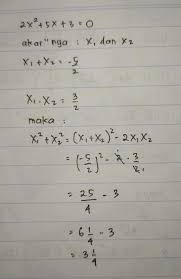 2x² + 5x + 3 = 0
akar" nya : x₁ dan x₂
x₁ + x₂ = -5/2
x₁ . x₂ = 3/2
maka :
x₁² + x₂² = (x₁ + x₂)² - 2x₁x₂
= (-5/2)² - 2 . 3/2
= 25/4 - 3
= 6 1/4 - 3
= 3 1/4